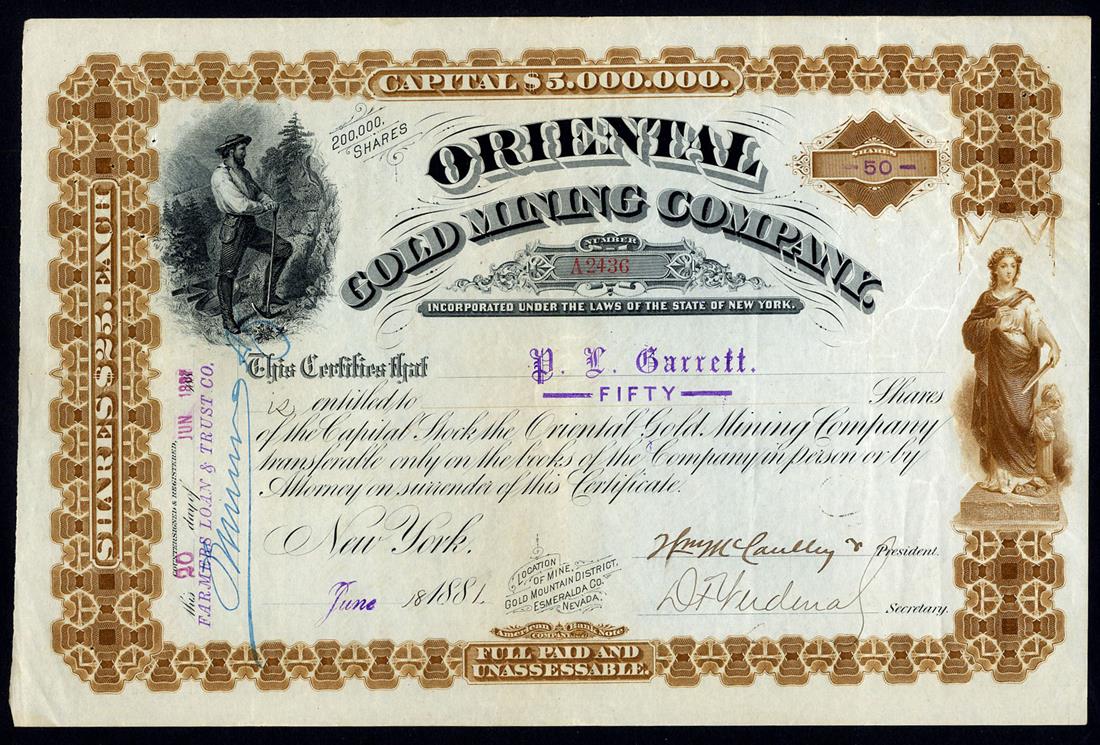 CAPITAL $5.000.000.
200,000, SHARES
ORIENTAL
GOLD MINING COMPANY.
SHARES
50
NUMBER
A2436
INCORPORATED UNDER THE LAWS OF THE STATE OF NEW YORK.
SHARES $25. EACH
This Certifies that P. L. Garrett.
is entitled to FIFTY Shares
of the Capital Stock the Oriental Gold Mining Company
transferable only on the books of the Company in person or by
Attorney on surrender of this Certificate.
New York.
June 18 1881
LOCATION
OF MINE,
GOLD MOUNTAIN DISTRICT,
ESMERALDA CO.
NEVADA.
President.
D F Verdenal
Secretary.
COUNTERSIGNED & REGISTERED,
this 20 day of JUN
FARMERS LOAN & TRUST CO.
American Bank Note
COMPANY
FULL PAID AND
UNASSESSABLE.